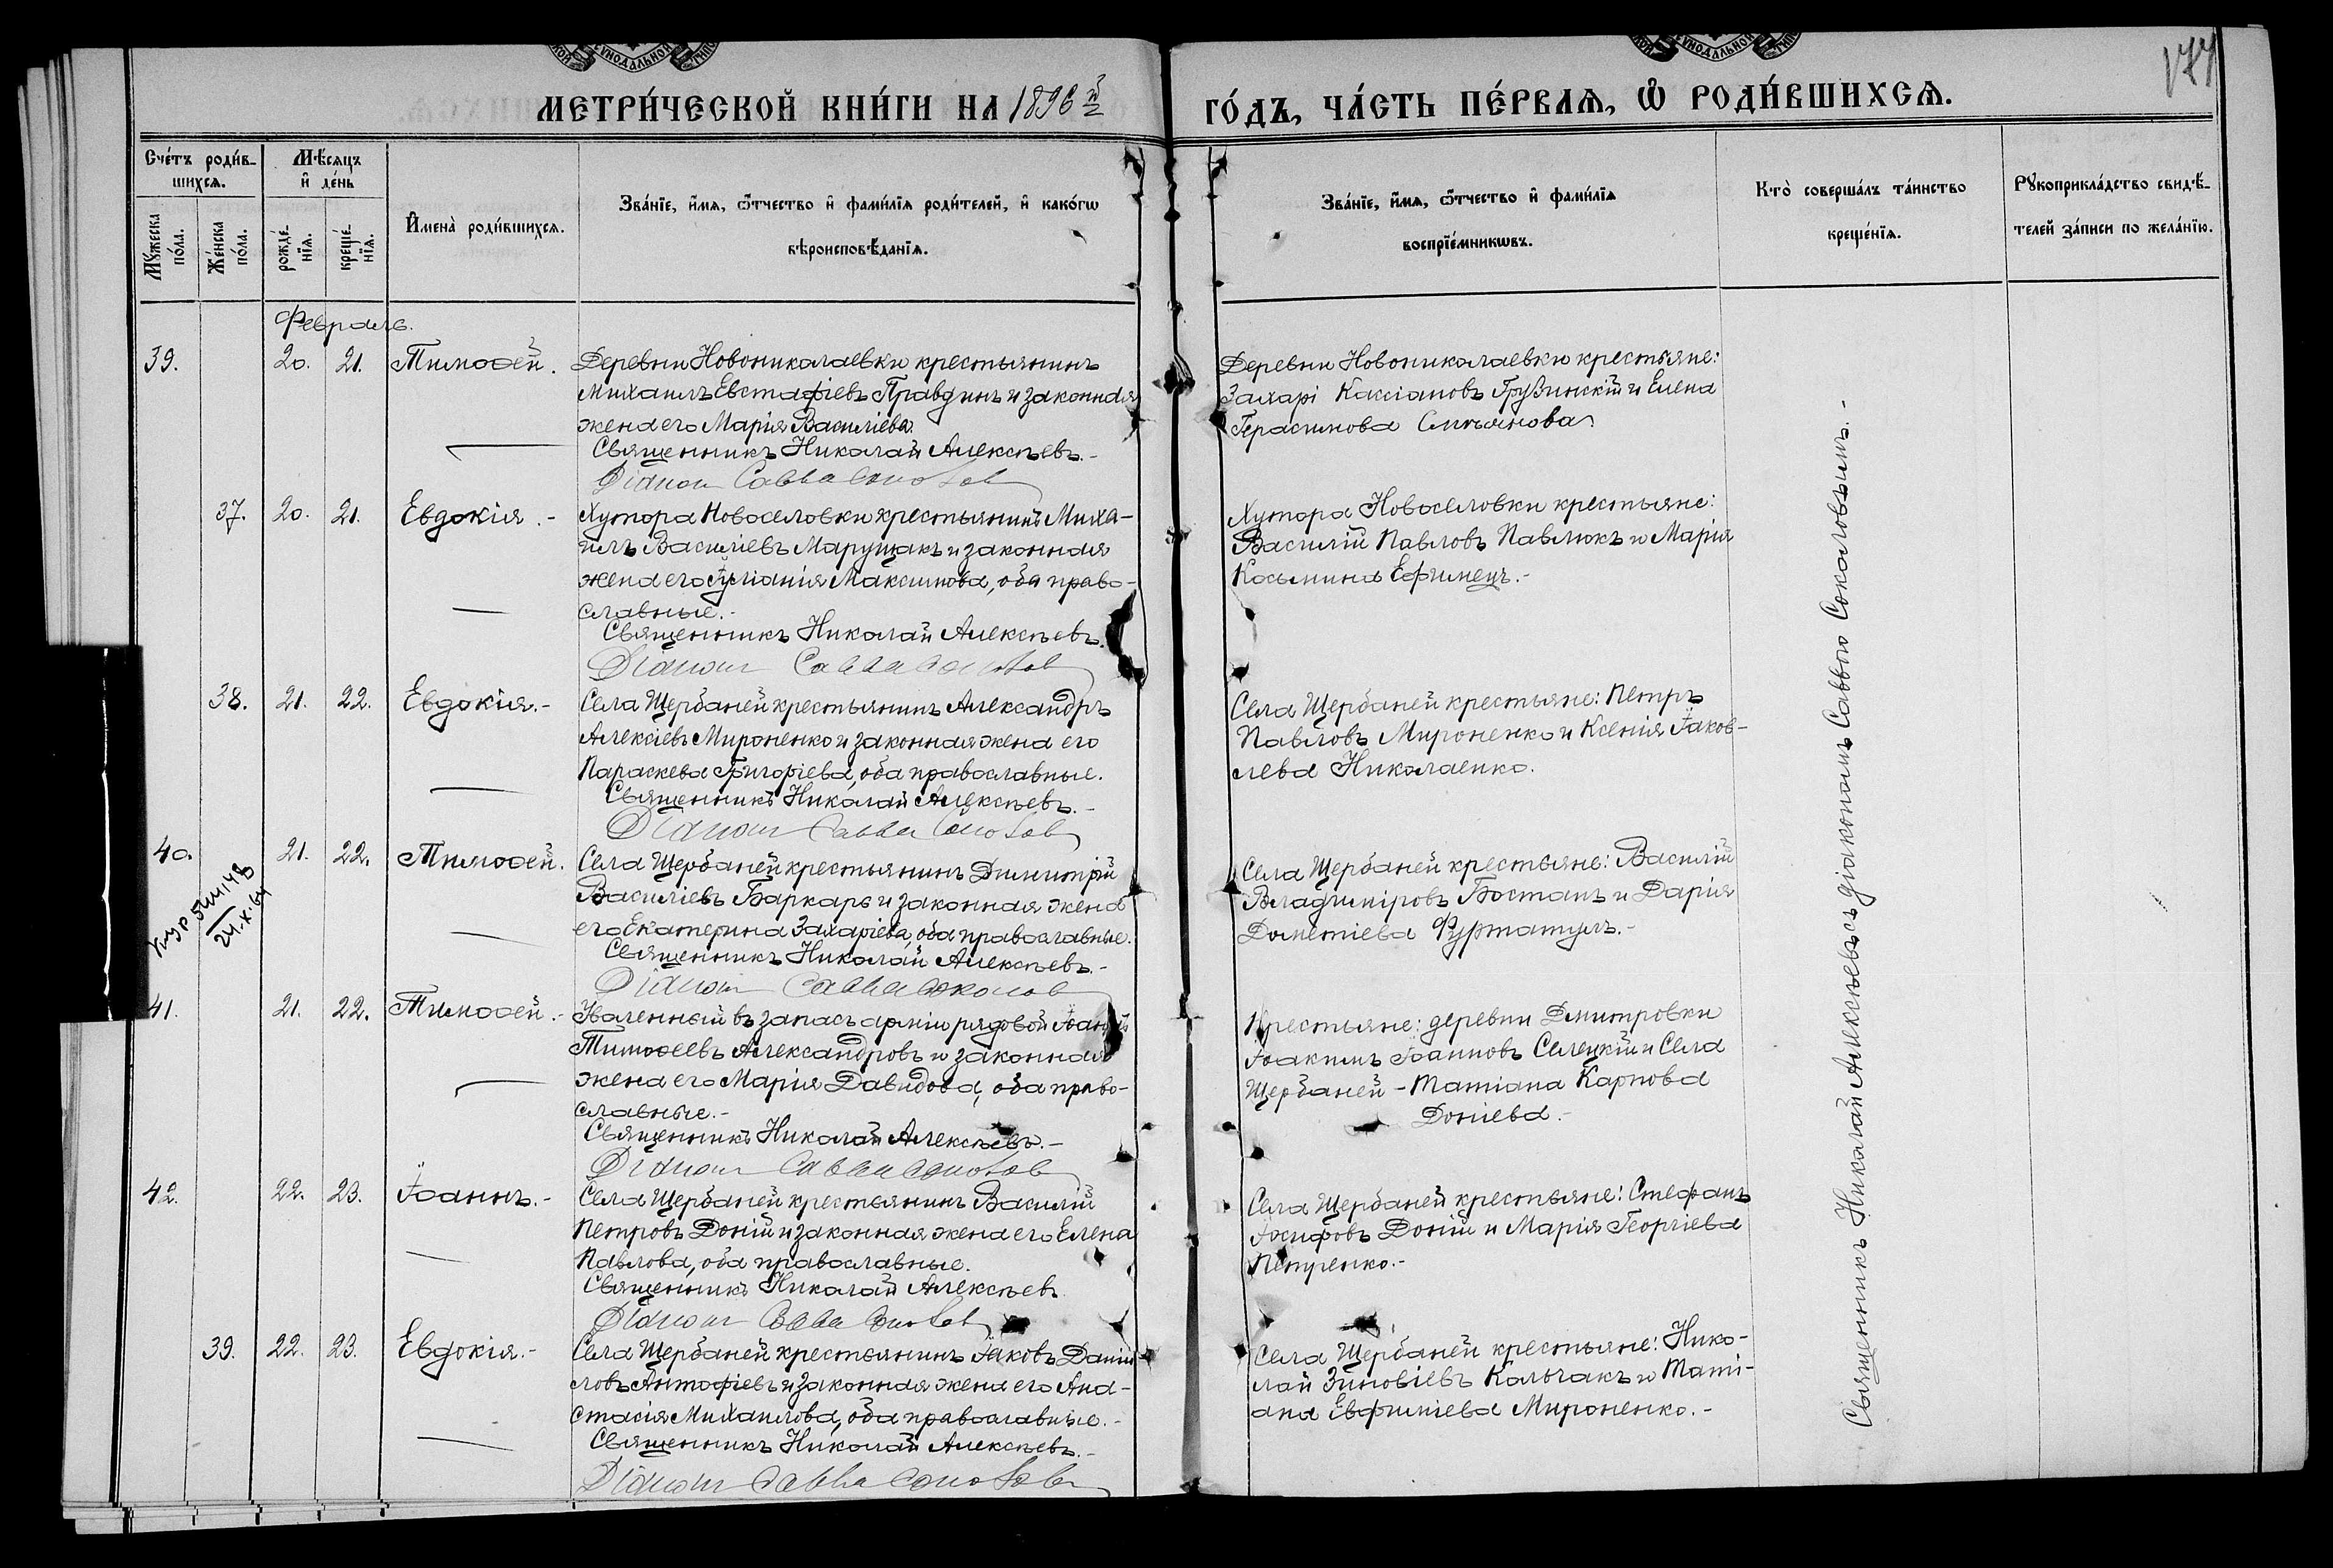 МЕТРИ́ЧЕСКОЙ КНИ́ГИ НА 1896 й
ГО́ДЪ, ЧА́СТЬ ПЕ́РВАѦ, Ѡ҆ РОДИ́ВШИХСѦ.
177
Сче́тъ роди́в-
шихсѧ.
Мꙋ́жеска
по́ла.
Же́нска
по́ла.
Мѣ́сѧцъ
и҆ де́нь
рожде́-
нїѧ.
креще́-
нїѧ.
И҆мена̀ роди́вшихсѧ.
Зва́нїе, и҆́мѧ, ѻ҆́тчество и҆ фами́лїѧ роди́телей, и҆ како́гѡ
вѣроисповѣ́данїѧ.
Зва́нїе, и҆́мѧ, ѻ҆́тчество и҆ фами́лїѧ
воспрїе́мникѡвъ.
Кто̀ соверша́лъ та́инство
креще́нїѧ.
Рꙋкоприкла́дство свидѣ́-
телей за́писи по жела́нїю.
Февраль.
39. 20. 21. Тимоѳей.
Деревни Новониколаевки крестьянинъ
Михаилъ Евстафіевъ Правдинъ и законная
жена его Марія Василіева.
Священникъ Николай Алексѣевъ.-
Діаконъ Савва Соколовъ
Деревни Новониколаевки крестьяне:
Захарі Кассіановъ Грузинскій и Елена
Герасимова
37. 20. 21. Евдокія.-
Хутора Новоселовки крестьянинъ Миха-
илъ Василіевъ Марущакъ и законная
жена его Іуліанія Максимова, оба право-
славные.-
Священникъ Николай Алексѣевъ.
Діаконъ Савва Соколовъ
Хутора Новоселовки крестьяне:
Василій Павловъ Павлюкъ и Марія
Косьмина Ефимецъ.-
38. 21. 22. Евдокія.-
Села Щербаней крестьянинъ Александръ
Алексіевъ Мироненко и законная жена его
Параскева Григоріева, оба православные.
Священникъ Николай Алексѣевъ.-
Діаконъ Савва Соколовъ
Села Щербаней крестьяне: Петръ
Павловъ Мироненко и Ксенія Іаков-
лева Николаенко.
40. 21. 22. Тимоѳей.
24.X.64
Села Щербаней крестьянинъ Димитрій
Василіевъ Баркарь и законная жена
его Екатерина Захаріева, оба православные.
Священникъ Николай Алексѣевъ.-
Діаконъ Савва Соколовъ
Села Щербаней крестьяне: Василій
Владиміровъ Бостанъ и Дарія
Дометіева Фуртатулъ.-
41. 21. 22. Тимоѳей.-
Уволенный въ запасъ арміи рядовой Іоаннъ
Тимоѳеевъ Александровъ и законная
жена его Марія Давидова, оба право-
славные.-
Священникъ Николай Алексѣевъ.-
Діаконъ Савва Соколовъ
Крестьяне: деревни Дмитровки
Іоакимъ Іоанновъ Селецкій и Села
Щербаней - Татіана Карпова
Доніева.-
42. 22. 23. Іоаннъ.-
Села Щербаней крестьянинъ Василій
Петровъ Доній и законная жена его Елена
Павлова, оба православные.
Священникъ Николай Алексѣевъ
Діаконъ Савва Соколовъ
Села Щербаней крестьяне: Стефанъ
Іосифовъ Доній и Марія Георгіева
Петренко.-
39. 22. 23. Евдокія.-
Села Щербаней крестьянинъ Іаковъ Даніи
ловъ Антофіевъ и законная жена его Ана-
стасія Михаилова, оба православные.-
Священникъ Николай Алексѣевъ.-
Діаконъ Савва Соколовъ
Села Щербаней крестьяне: Нико-
лай Зиновіевъ Колчакъ и Таті-
ана Евфиміева Мироненко.-
Священникъ Николай Алексѣевъ съ діакономъ Саввою Соколовымъ.-